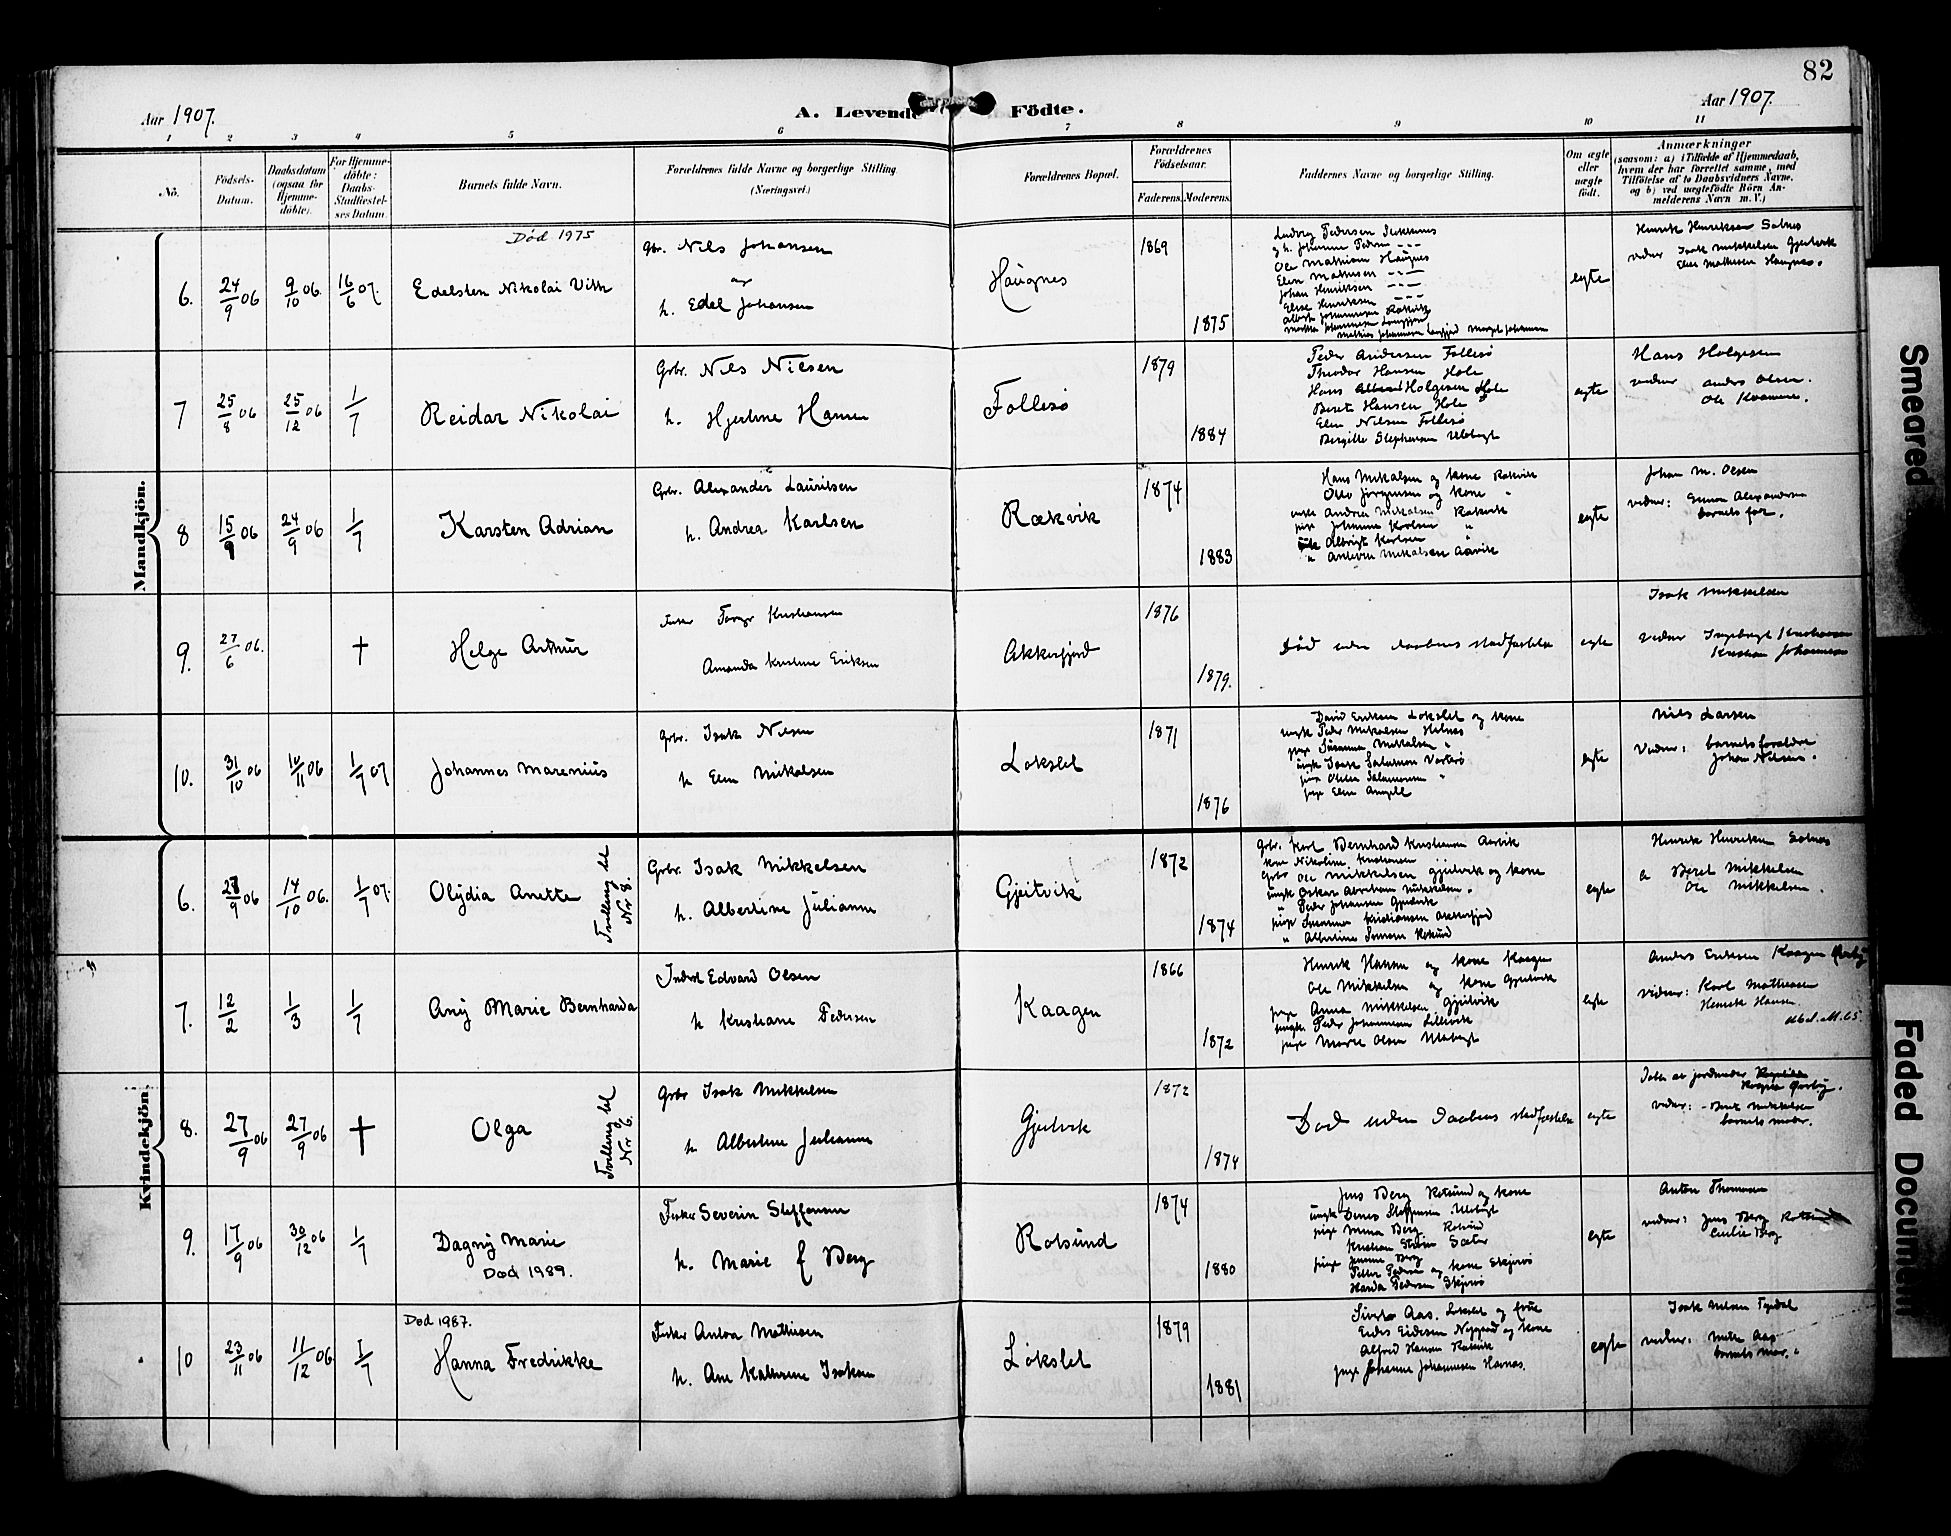 82
Aar 1907.
A. Levende Födte.
Aar 1907.
1 2 3 4 5 6 7 8 9 10 11
No.
Födsels-Datum.
Daabsdatum (ogsaa for Hjemme-döbte).
For Hjemme-döbte: Daabs-Stadfæstel-ses Datum.
Barnets fulde Navn.
Forældrenes fulde Navne og borgerlige Stilling. (Næringsvei.)
Forældrenes Bopæl.
Forældrenes Födselsaar.
Faderens. Moderens.
Faddernes Navne og borgerlige Stilling.
Om ægte eller uægte födt.
Anmærkninger
(saasom: a) i Tilfælde af Hjemmedaab, hvem der har forrettet samme, med Tilföielse af to Daabsvidners Navne, og b) ved uægtefödte Börn An-melderens Navn m. V.)
Mandkjön.
Död 1975
6. 24/9 06 9/10 06. 16/6 07. Edelsten Nikolai Vith
Gbr. Nils Johansen
og
h. Edel Johansen
Haugnes
1869
1875
Ole Mathisen Haugnes
Elen Mathisen
Johan Henriksen
Elise Henriksen
egte
Henrik Henriksen Solnes
vidner Isak Mikkelsen Gjeitvik
Elen Mathisen Haugnes.
7 25/8 06 25/12 06 1/7 Reidar Nikolai
Grbr. Nils Nilsen
h. Hjerdine Hansen
Follesö
1879
1884
Peder Andersen Follesö
Theodor Hansen Hole
Hans Albert Holgersen Hole
Beret Hansen Hole
Elen Nilsen Follesö
Bergitte Stephensen Ulobugt
egte
Hans Holgersen
vidner Anders Olsen.
Ole Kvamme.
8 15/9 06 24/9 06 1/7 Karsten Adrian
Grbr. Alexander Lauritsen
h. Andrea Karlsen
Rækvik
1874
1883
Hans Mikalsen og kone Rakvik
Otto Jörgensen og kone "
ungk Andreas Mikalsen Rakvik
pige Johanne Karlsen "
Albrigt Karlsen "
egte
Johan M. Olsen
vidner: Simon Alexandersen
barnets far.
9. 27/6 06. † Helge Arthur
Fisker Kristiansen
Amanda Kristine Eriksen
Akkerfjord
1876
1879.
Död uden daabens stadfæstelse
egte
Isak Mikkelsen
vidner Ingebrigt Kristiansen
Kristian Johannesen
10. 31/10 06 10/11 06 1/7 07 Johannes Marenius
Grbr. Isak Nilsen
h Elen Mikalsen
Lokslet
1871
1876
David Eriksen Lokslet og kone
ungk Peder Mikalsen Helnes
pige Susanna Mikkalsen "
ungk Isak Salamon Vortesö
egte
Nils Larsen
Vidner: barnets forældre
Johan Nilsen.
Kvindekjön.
6. 27/9 06 14/10 06. 1/7 07. Olydia Anette
Tvilling til
Nr 8.
Grbr. Isak Mikkelsen
h. Albertine Julianne
Gjeitvik
1872
1874
Grbr. Karl Bernhard Kristiansen Aarvik
kone Nikoline Kristiansen
Grbr Ole Mikkelsen Gjeitvik og kone
ungk Oskar Abraham Mikkelsen "
" Peder Johansen Gjeitvik
pige Susanna Kristiansen Akkerfjord
" Albertine Rotsund
egte
Henrik Henriksen Solnes
Beret Mikkelsen
Ole Mikkelsen.
7. 12/2 1/3 1/7 Any Marie Bernharda
Inderst Edvard Olsen
h Kristiane Pedersen
Kaagen
1866
1872
Henrik Hansen og kone Kaagen
Ole Mikkelsen og kone Gjeitvik
pige Anna Mikkelsen Gjeitvik
ungk. Peder Johannesen Lillevik
pige Marie Olsen Ulobugt
egte
Anders Eriksen Kaagen
vidner: Karl Mathiasen
Henrik Hansen.
8. 27/9 06 27/9 06 † Olga
Tvilling til
Nr 6.
Grbr Isak Mikkelsen
h Albertine Julianne
Gjeitvik
1872
1874
Död uden daabens stadfæstelse
egte
vidner: Beret Mikkelsen
barnets moder.
9. 17/9 06 30/12 06 1/7 Dagny Marie
Död 1989.
Fisker Severin Steffensen
h. Marie f Berg
Rotsund
1874
1880
Jens Berg Rotsund og kone
ungk Steffensen Ulobugt
pige Minna Berg Rotsund
Petter Pedersen og kone Skjervö
Harda Pedersen Skjervö
egte
Anton Thomassen
vidner: Jens Berg Rotsund
Cecilie Berg
Död 1987.
10 23/11 06 11/12 06 1/7 Hanna Fredrikke
Fisker Anton Mathisen
h. Ane Kathrine Isaksen
Lökslet
1879
1881
Sivert Aas. Lökslet og frue
Eidis Eidissen Nygaard og kone
Alfred Hansen Rakvik
pige Johanne Johannesen Havnnes.
egte
Isak Nilsen
vidner: Aas
barnets mor.
Smeared
Faded Document